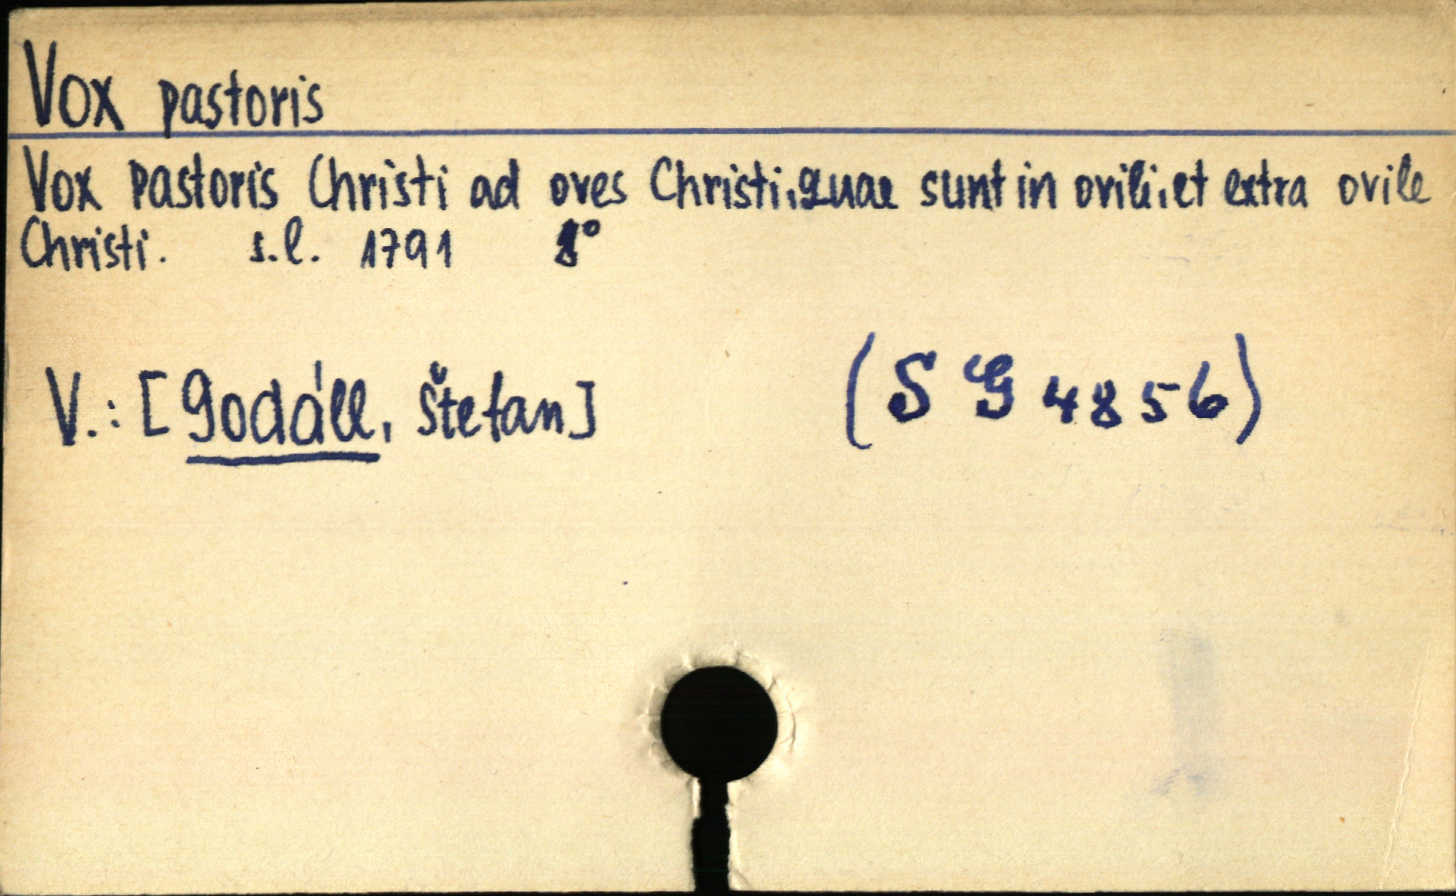 Vox pastoris
Vox Pastoris Christi ad oves Christi, quae sunt in ovili, et extra ovile
Christi. s.l. 1791 8°
V.: [Godáll, Štefan] (S G 4856)